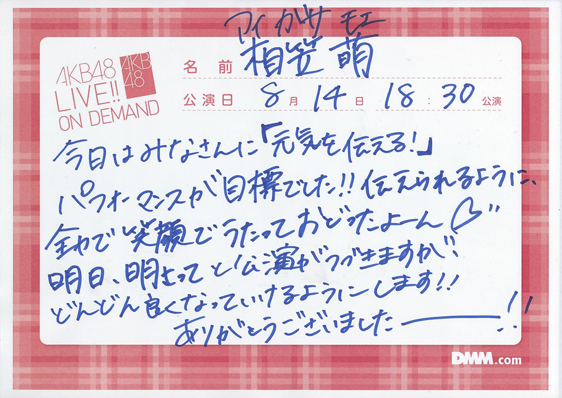 アイガサ モエ
AKB48
LIVE!!
ON DEMAND
AKB
48
名前 相笠 萌
公演日 8月14日 18:30公演
今日はみなさんに「元気を伝える!」
パフォーマンスが目標でした!!伝えられるように、
全力で笑顔でうたっておどったよーん♡"
明日、明さってと公演がつづきますが"
どんどん良くなっていけるようにします!!
ありがとうございました――!!
DMM.com